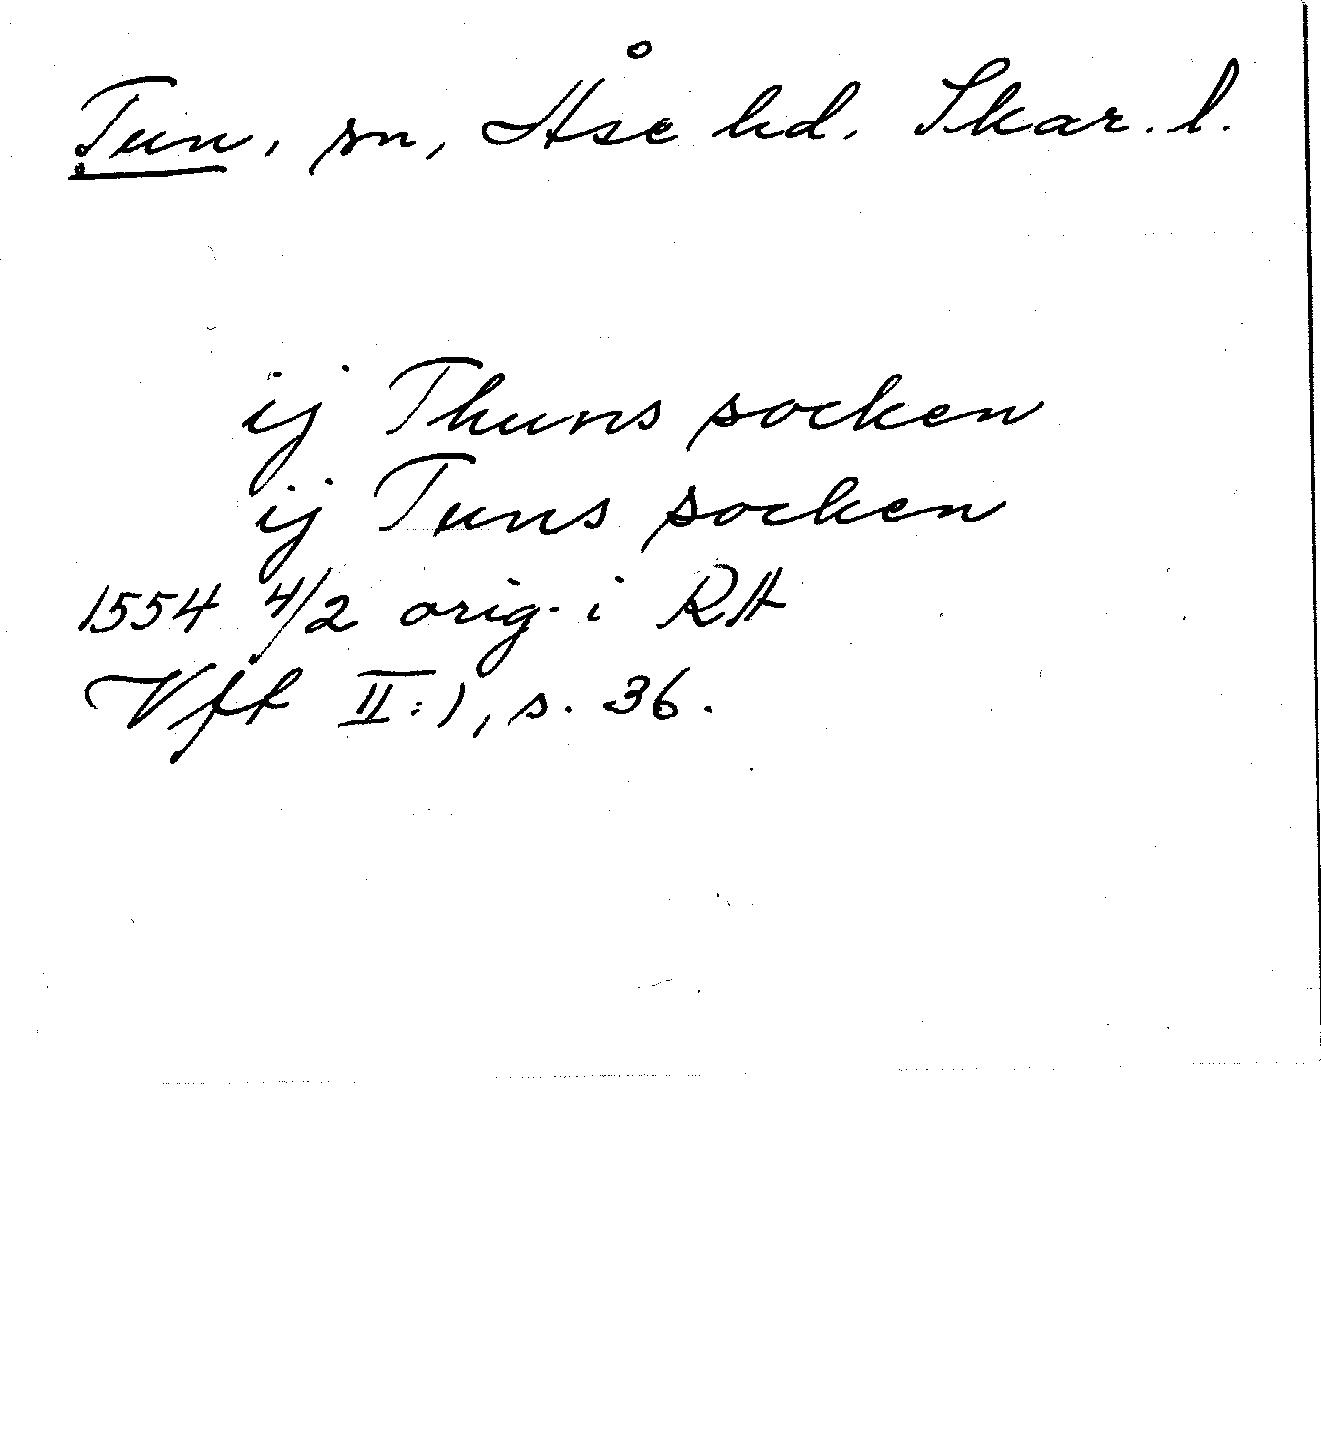 Tun, sn, Åse hd. Skar. l.
ij Thuns socken
ij Tuns socken
1554 4/2 orig. i RA
Vff II:1, s. 36.